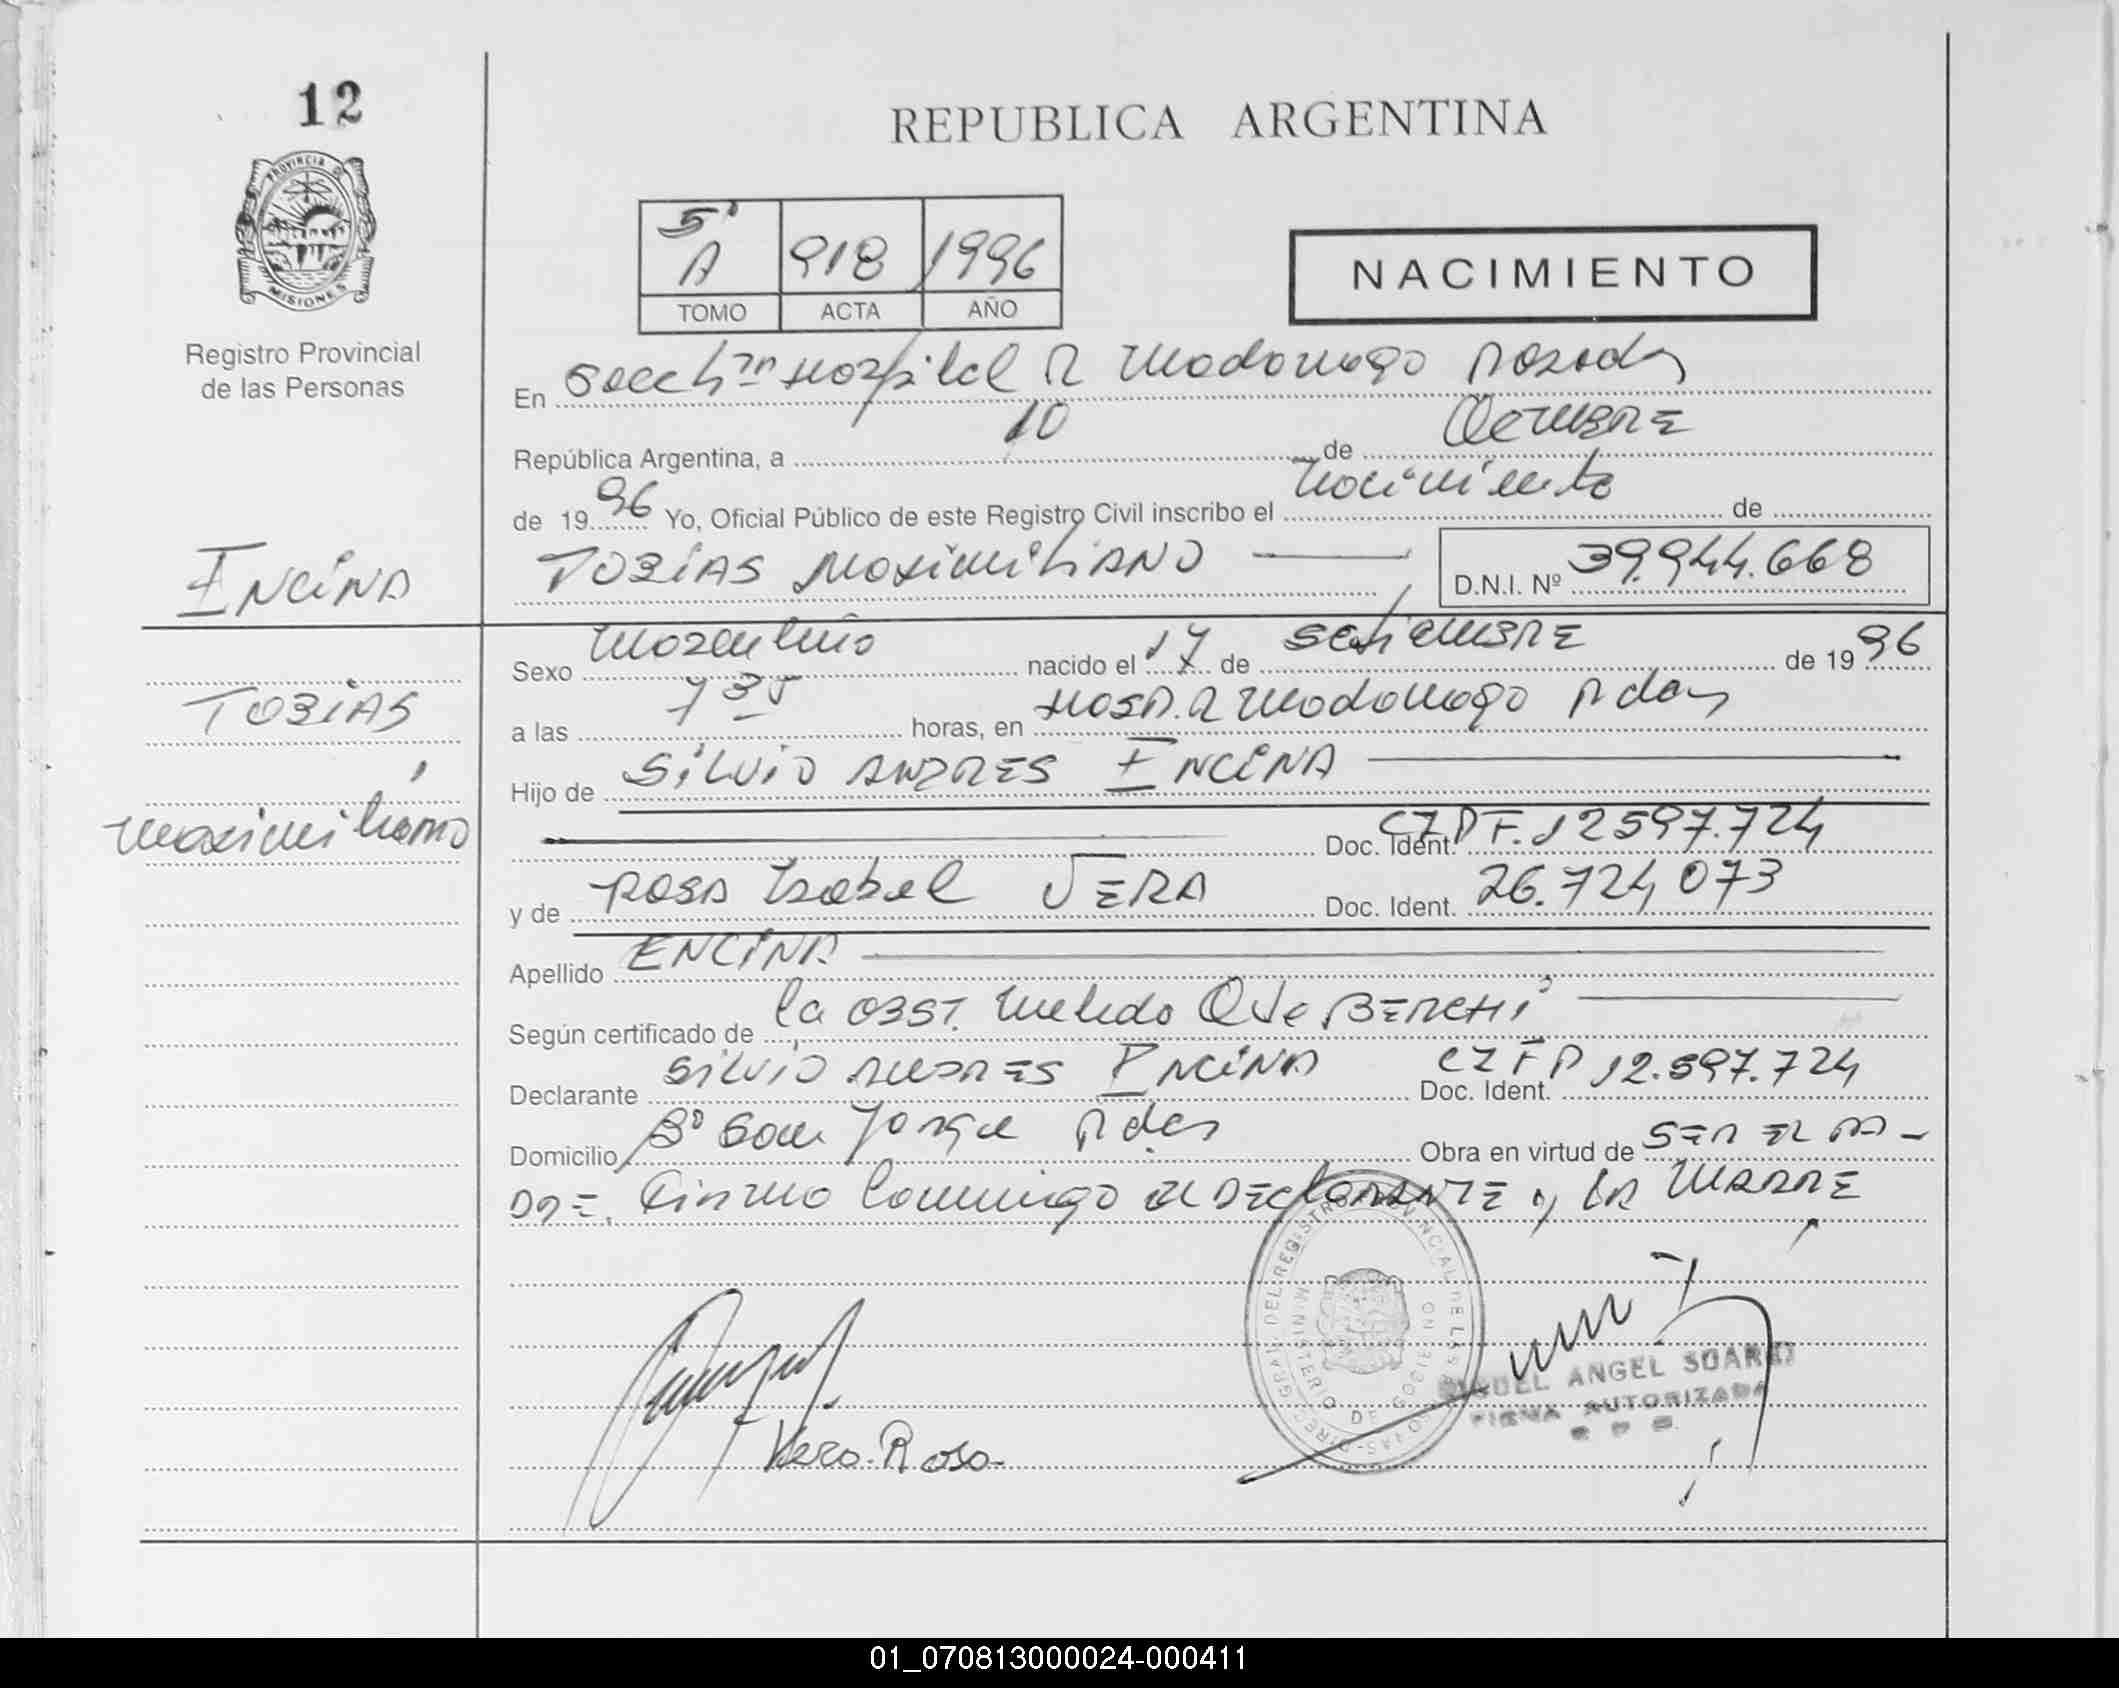 12
REPUBLICA ARGENTINA
PROVINCIA DE
MISIONES
Registro Provincial
de las Personas
5º
A 918 1996
TOMO ACTA AÑO
NACIMIENTO
En Secc 4ta Hospital R Madariaga Posadas
República Argentina, a 10 de Octubre
de 1996 Yo, Oficial Público de este Registro Civil inscribo el nacimiento de
TOBIAS MAXIMILIANO D.N.I. Nº 39.944.668
ENCINA
Sexo Masculino nacido el 17 de SETIEMBRE de 1996
TOBIAS
MAXIMILIANO
a las 7 35 horas, en HOSP. R Madariaga Pdas
Hijo de SILVIO ANDRES ENCINA
Doc. Ident. CIPF. 12597.724
y de ROSA Isabel VERA Doc. Ident. 26.724 073
Apellido ENCINA
Según certificado de la OBST. BERCHI
Declarante SILVIO ANDRES ENCINA Doc. Ident. CIFP 12.597.724
Domicilio Bº San Jorge Pdas Obra en virtud de SER EL PA-
DRE. Firma conmigo el DECLARANTE y LA MADRE
Vera Rosa
MIGUEL ANGEL SUAREZ
FIRMA AUTORIZADA
R P P
01_070813000024-000411